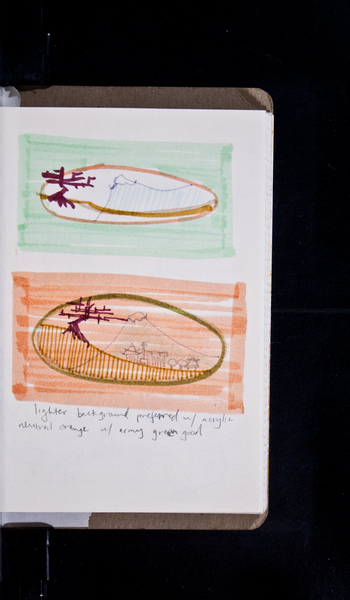 lighter background preferred w/ acrylic
neutral orange w/ army green good